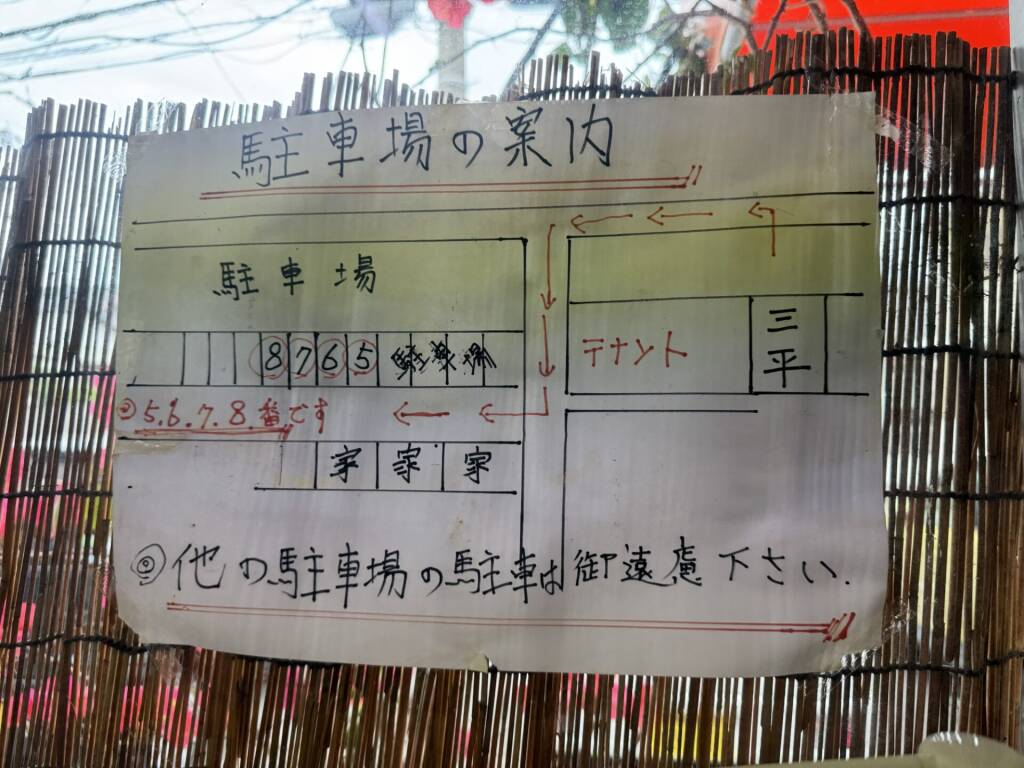 駐車場の案内
駐車場
8 7 6 5
テナント
三平
◎5.6.7.8.番です
家 家 家
◎他の駐車場の駐車は御遠慮下さい.